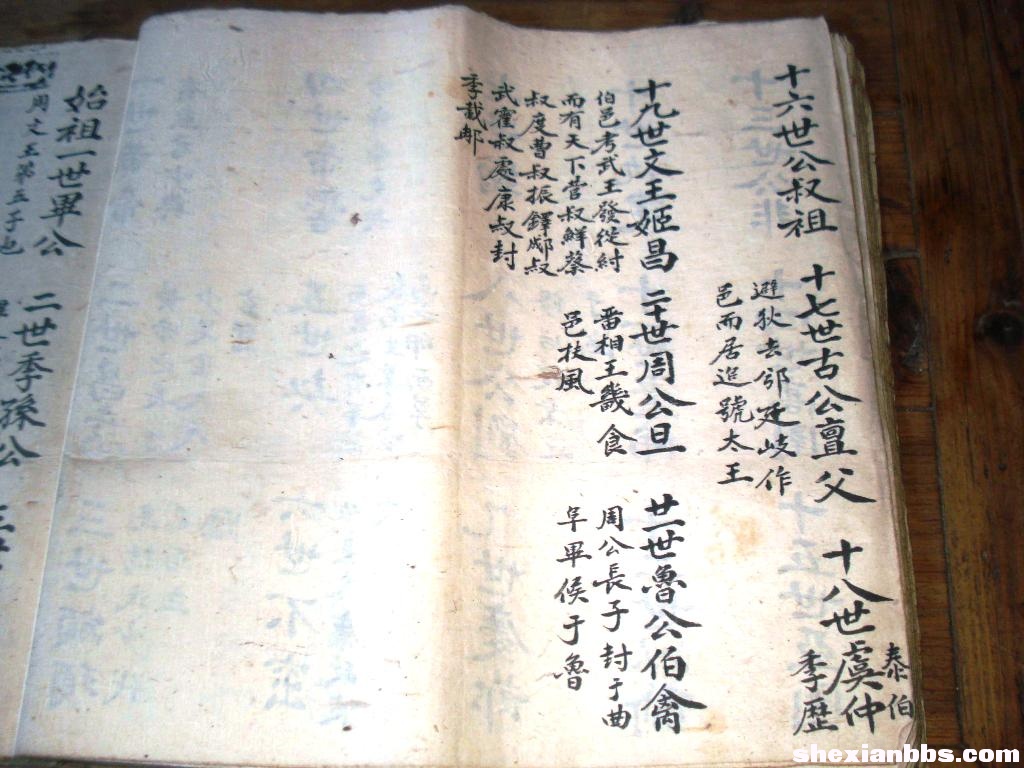 十六世公叔祖
十七世古公亶父
避狄去邠廷岐作
邑而居追號太王
十八世
泰伯
虞仲
季歷
十九世文王姬昌
伯邑考武王發從紂
而有天下菅叔鮮蔡
叔度曹叔振鐸郕叔
武霍叔處康叔封
季載
二十世周公旦
相王畿食
邑扶風
廿一世魯公伯禽
周公長子封于曲
阜畢侯于魯
始祖一世畢公
周文王第五子也
二世季孫公
shexianbbs.com